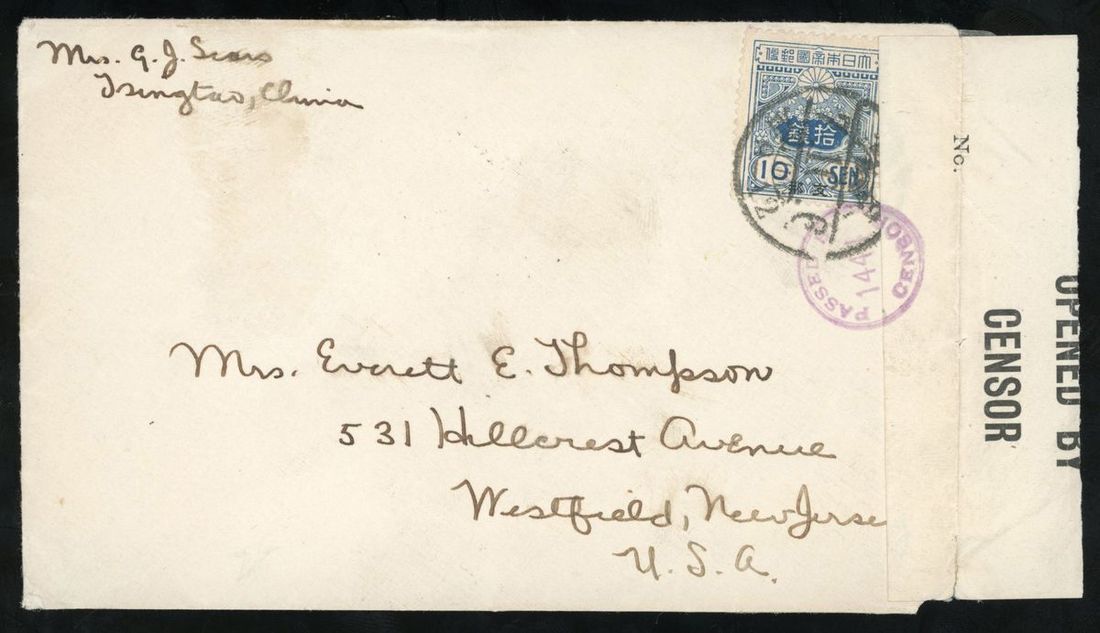 Mrs. G. J. Sears
Tsingtao, China
大日本帝國郵便
拾銭
10 SEN
支那
PASSED
144
CENSOR
No.
OPENED BY
CENSOR
Mrs. Everett E. Thompson
531 Hillcrest Avenue
Westfield, New Jerse
U. S. A.